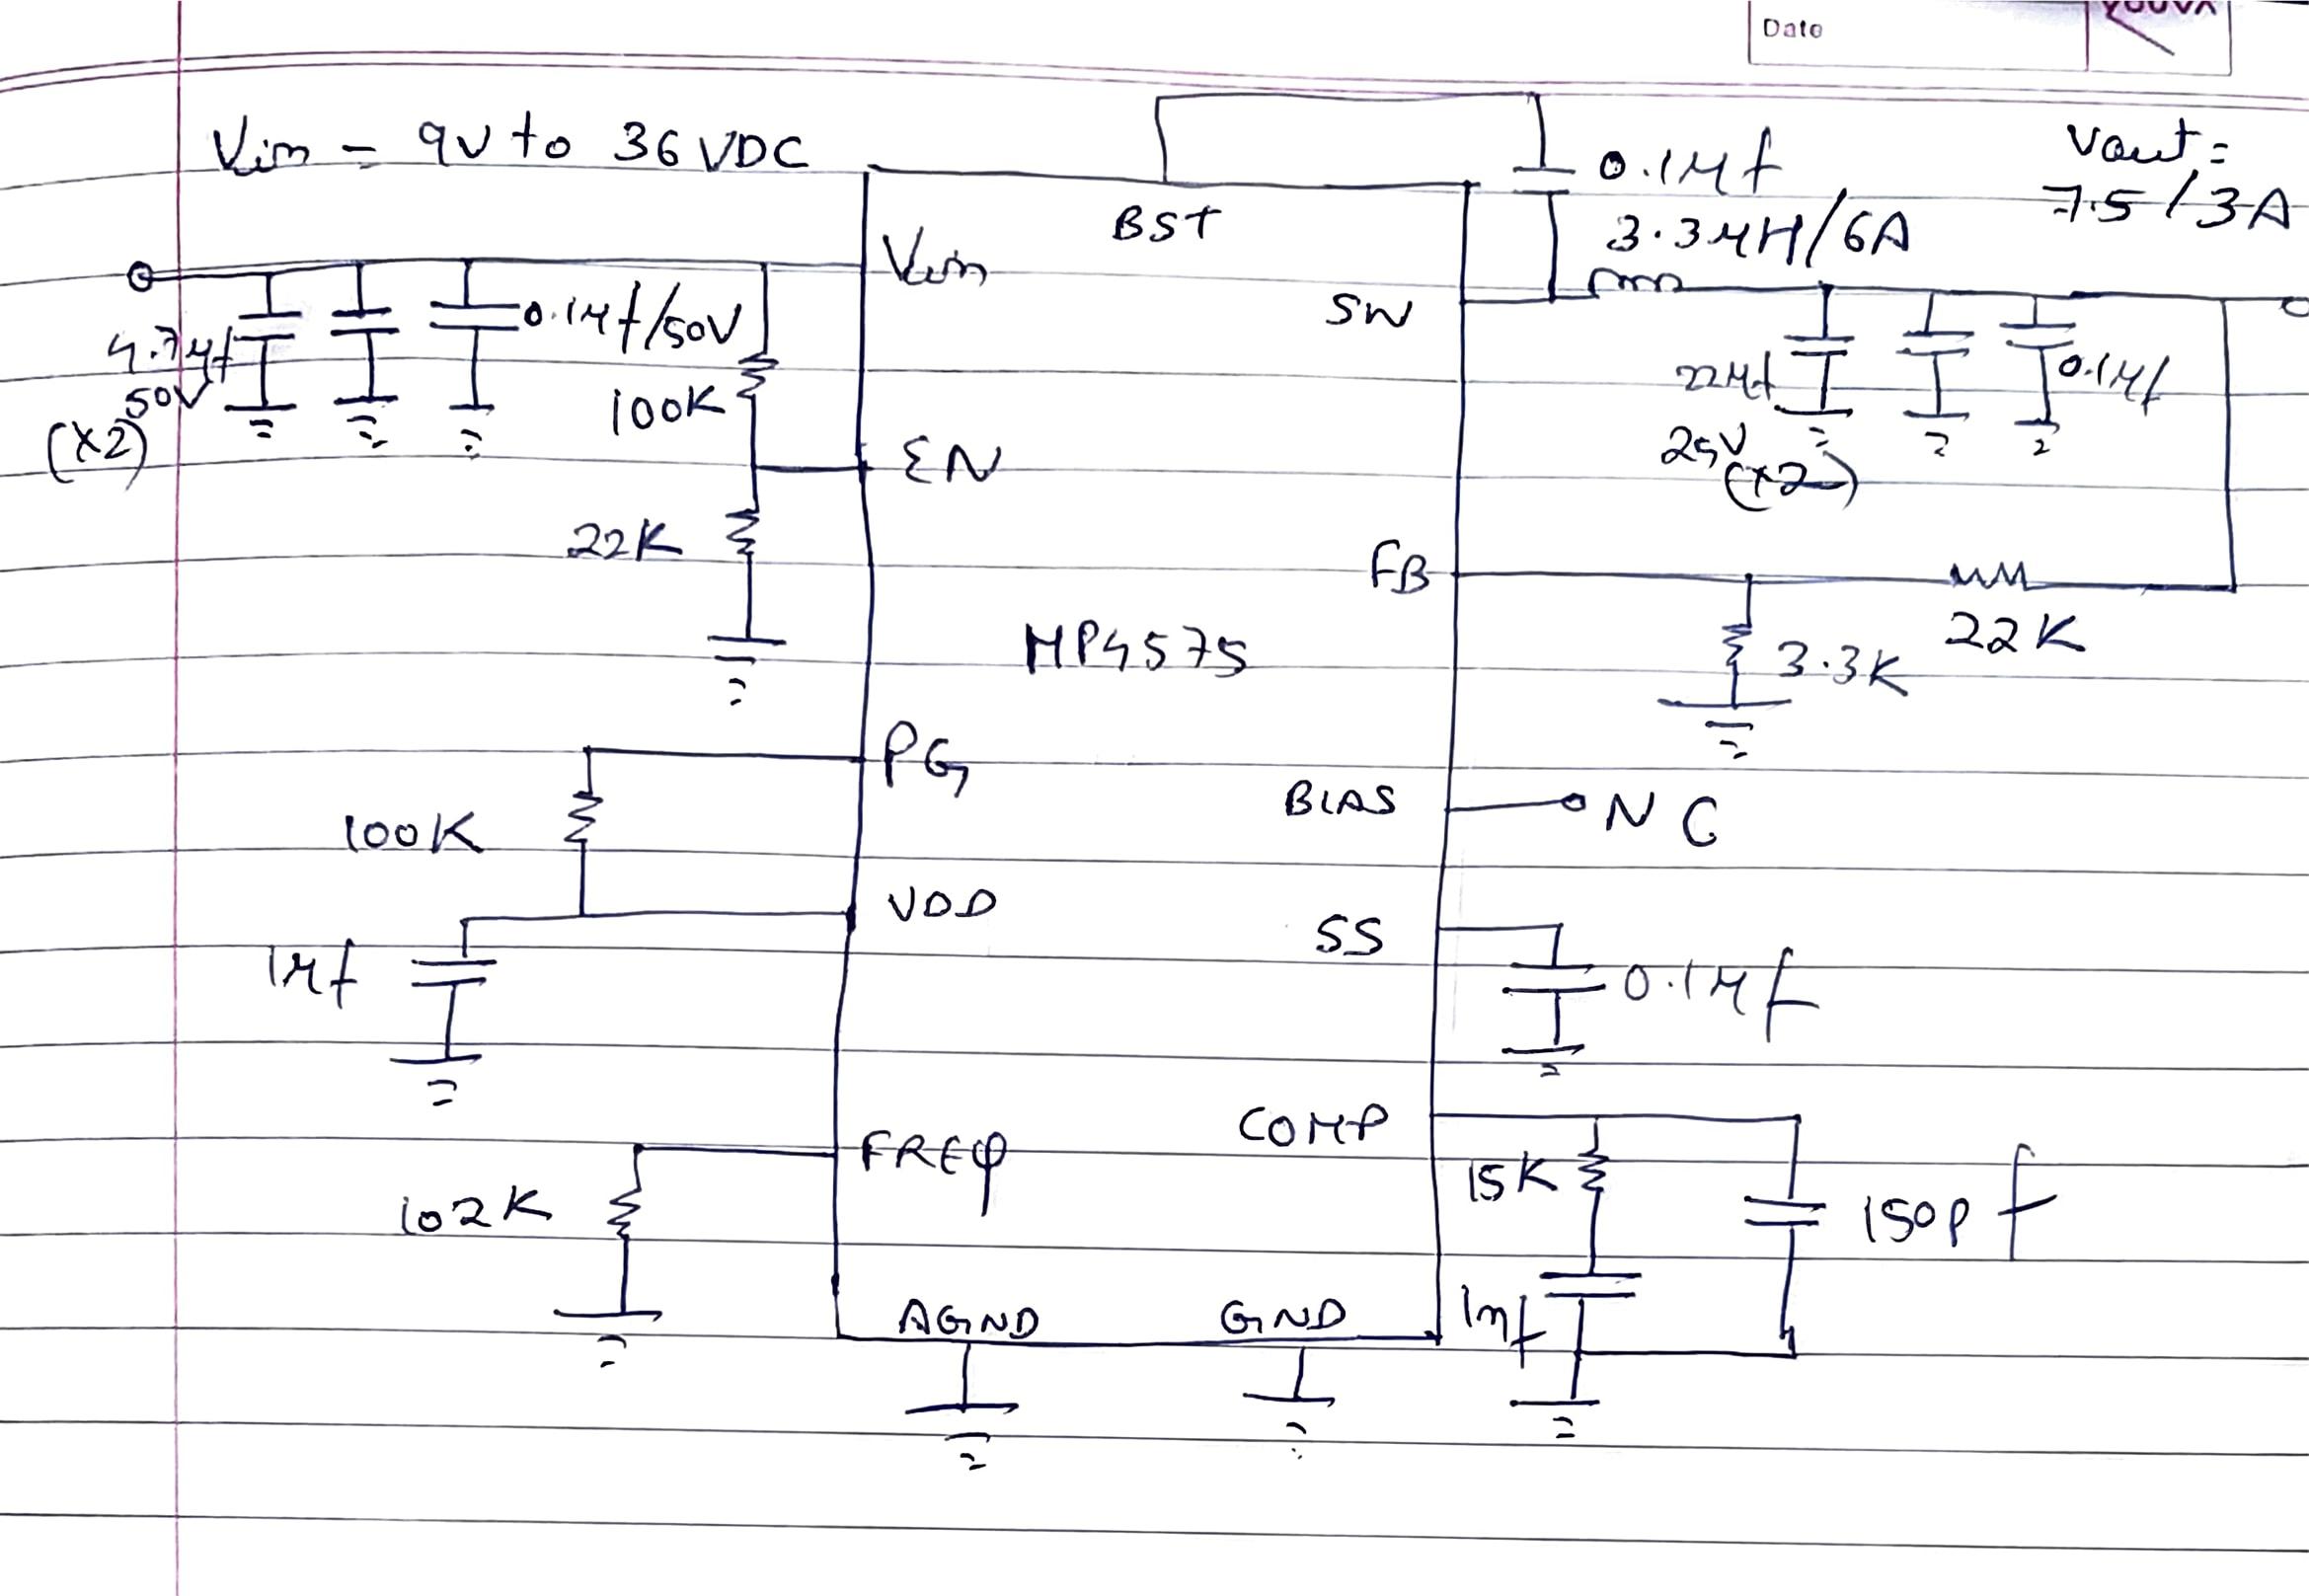 Date
YOUVA
Vin - 9V to 36 VDC
Vout =
7.5 / 3A
0.1μf
BST
3.3μH/6A
Vin
SW
0.1μf/50V
4.7μf
50V
(x2)
100K
EN
22μf
25V
(x2)
0.1μf
22K
FB
22K
3.3K
MP4575
PG
BIAS
NC
100K
VDD
SS
1μf
0.1μf
COMP
FREQ
15K
150pf
102K
1nf
AGND
GND